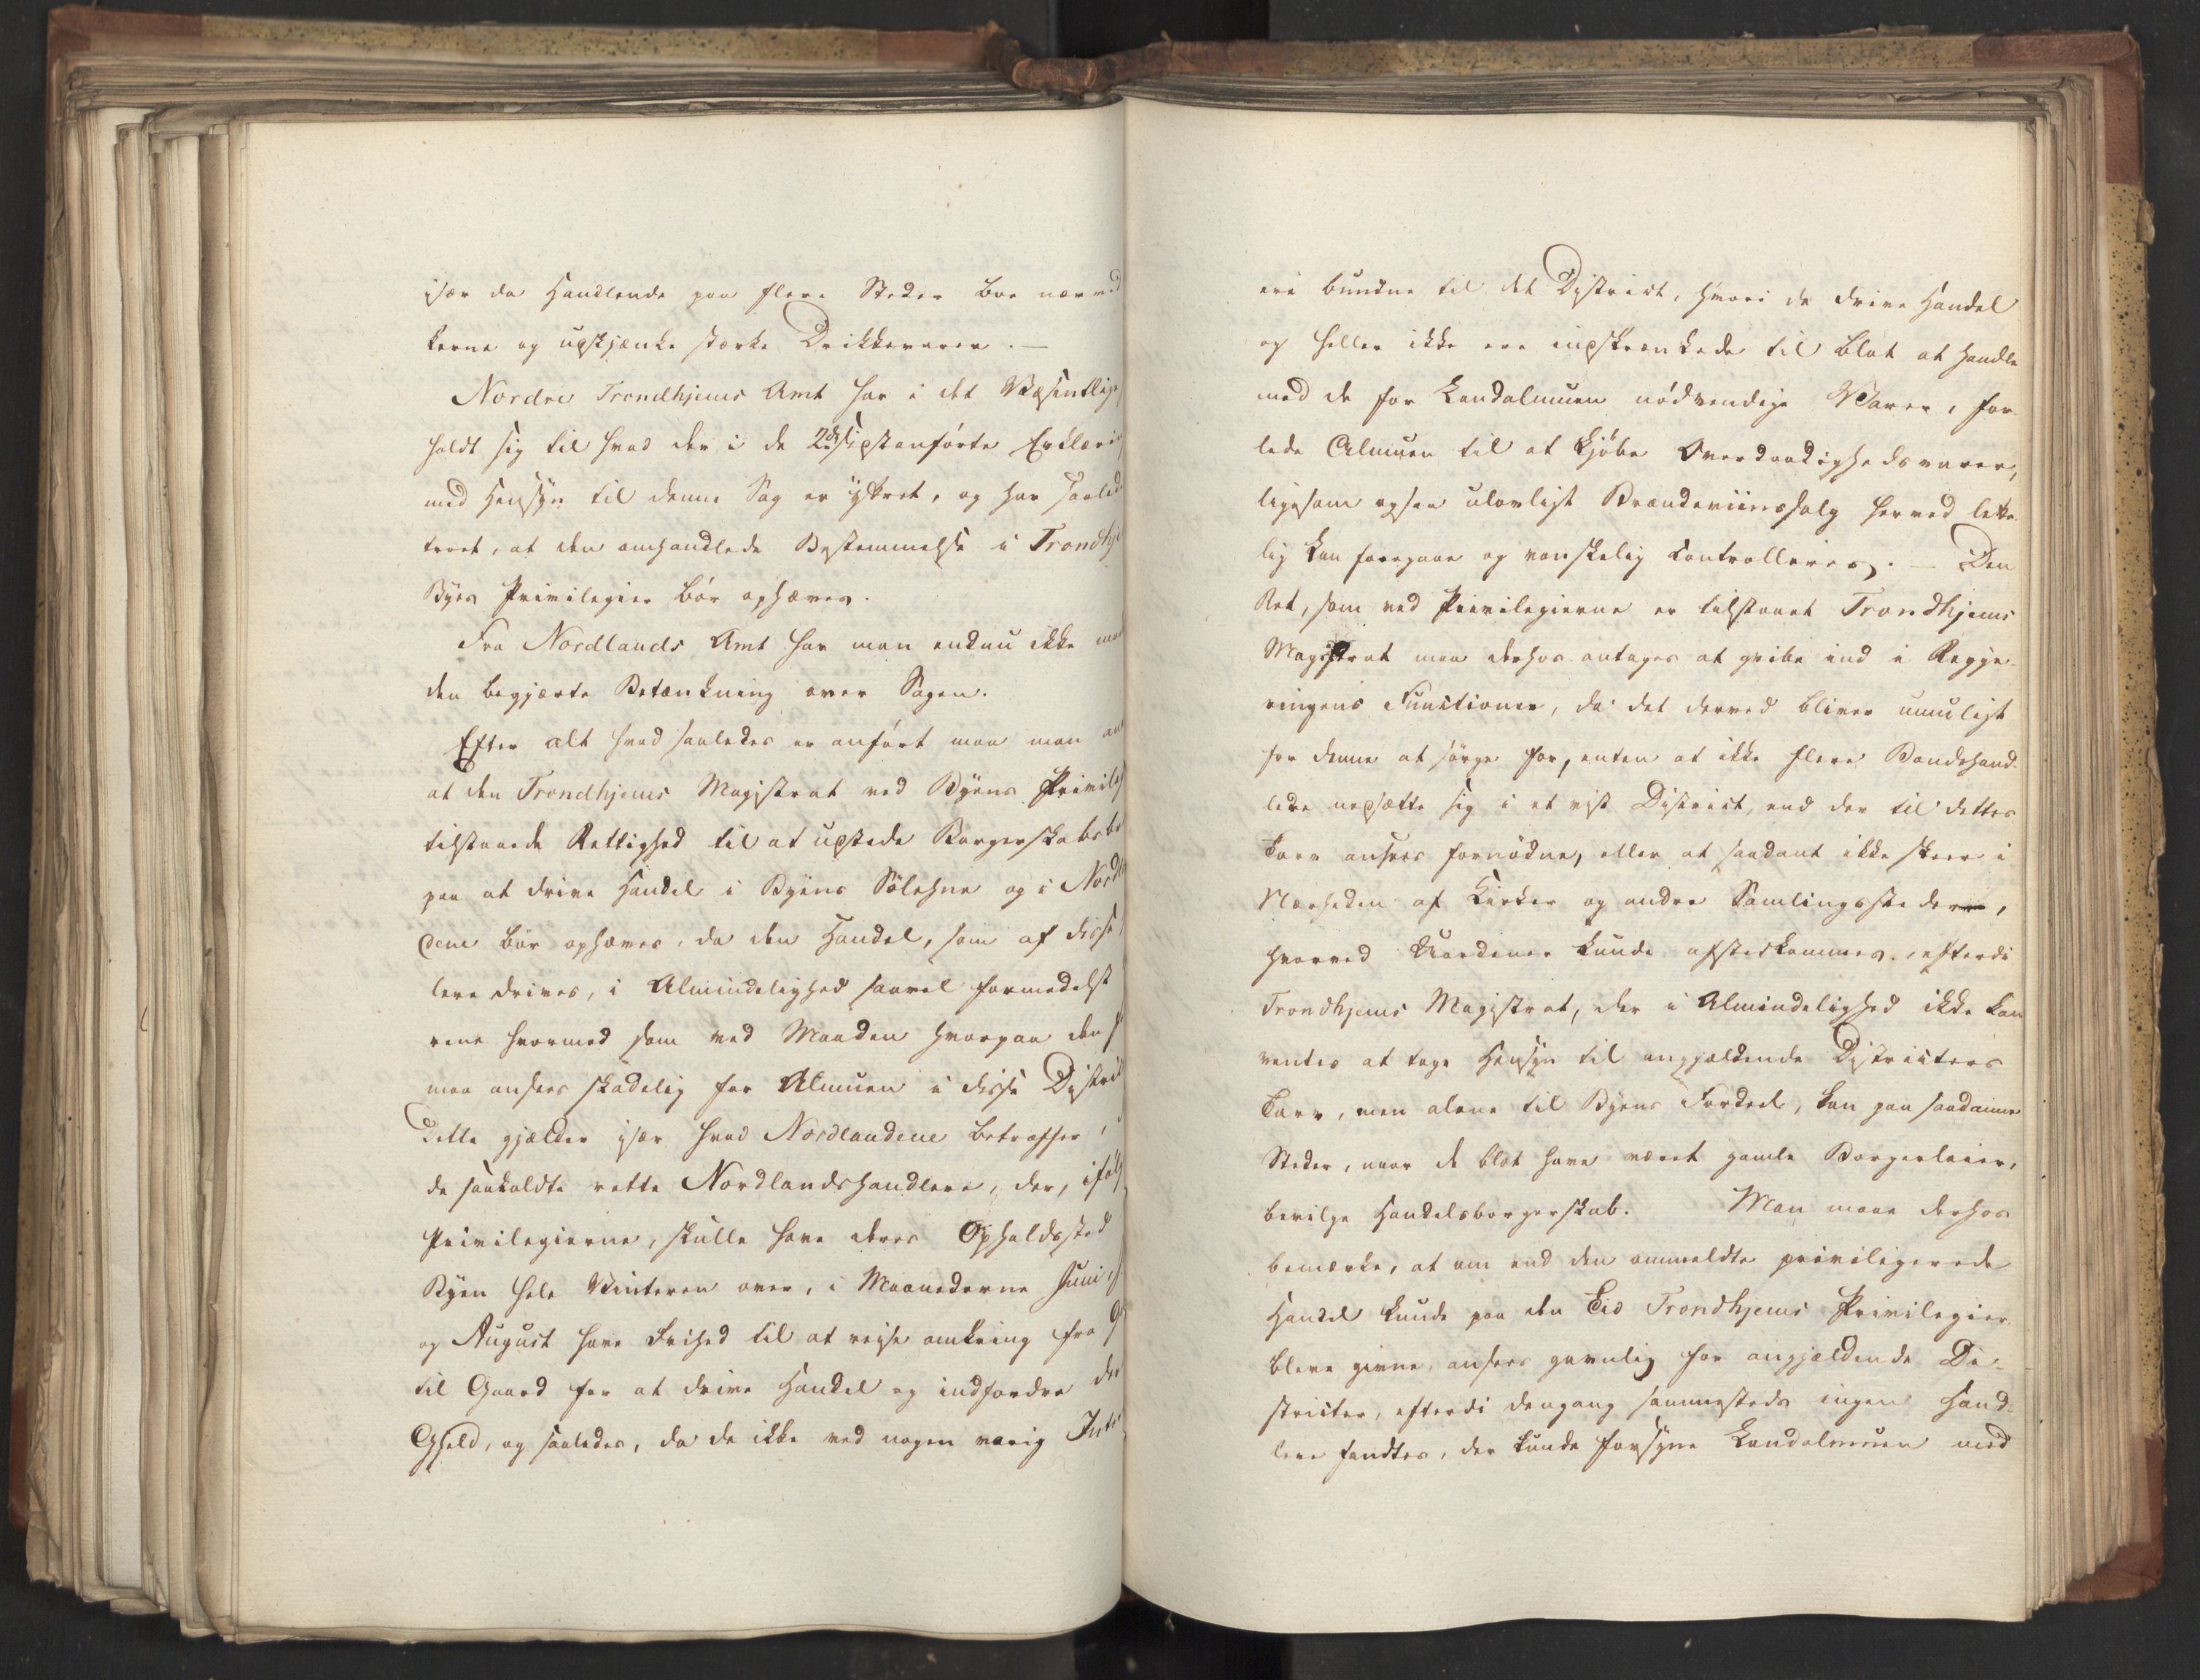 især da Handlende paa flere Steder boe nær ved
kerne og udskjænke stærke Drikkevarer. —
Nordre Trondhjems Amt har i det Væsentlige
holdt sig til hvad der i de 2de sidstanførte Erklærin
med Hensyn til denne Sag er yttret, og har saalede
troet, at den omhandlede Bestemmelse i Trondhje
Byes Privilegier bør ophæves.
Fra Nordlands Amt har man endnu ikke
den begjærte Betænkning over Sagen.
Efter alt hvad saaledes er anført maa man an
at den Trondhjems Magistrat ved Byens Privile
tilstaaede Rettighed til at udstede Borgerskabsbr
paa at drive Handel i Byens Søelehne og i Nordl
dene bør ophæves, da den Handel, som af disse
lere drives, i Almindelighed saavel formedelst
rene hvormed som ved Maaden hvorpaa den
maa ansees skadelig for Almuen i disse Distric
Dette gjælder især hvad Nordlandene betræffer,
de saakaldte rette Nordlandshandlere, der, ifølg
Privilegierne, skulle have deres Opholdssted
Byen hele Vinteren over, i Maanederne Juni,
og August have Frihed til at reise omkring fra G
til Gaard for at drive Handel og indfordre der
Gjeld, og saaledes, da de ikke ved nogen varig Inte
ere bundne til det District, hvori de drive Handel
og heller ikke ere indskrænkede til blot at handle
med de for Landalmuen nødvendige Varer, for-
lede Almuen til at kjøbe Overdaadighedsvarer,
ligesom ogsaa ulovligt Brændeviinssalg herved lette-
lig kan foregaae og vanskelig controlleres. — Den
Ret, som ved Privilegierne er tilstaaet Trondhjems
Magistrat maa derhos antages at gribe ind i Regje-
ringens Functioner, da det derved bliver umuligt
for denne at sørge for, enten at ikke flere Bondehand-
lere nedsætte sig i et vist District, end der til dettes
Tarv ansees fornødne, eller at saadant ikke skeer i
Nærheden af Kirker og andre Samlingssteder,
hvorved Uordener kunde afstedkommes, efterdi
Trondhjems Magistrat, der i Almindelighed ikke kan
ventes at tage Hensyn til angjældende Districters
Tarv, men alene til Byens Fordeel, kan paa saadanne
Steder, naar de blot have været gamle Borgerleier,
bevilge Handelsborgerskab. Man maae derhos
bemærke, at om end den ommeldte priviligerede
Handel kunde paa den Tid Trondhjems Privilegier
bleve givne, ansees gavnlig for angjældende Di-
stricter, efterdi dengang sammesteds ingen Hand-
lere fandtes, der kunde forsyne Landalmuen med